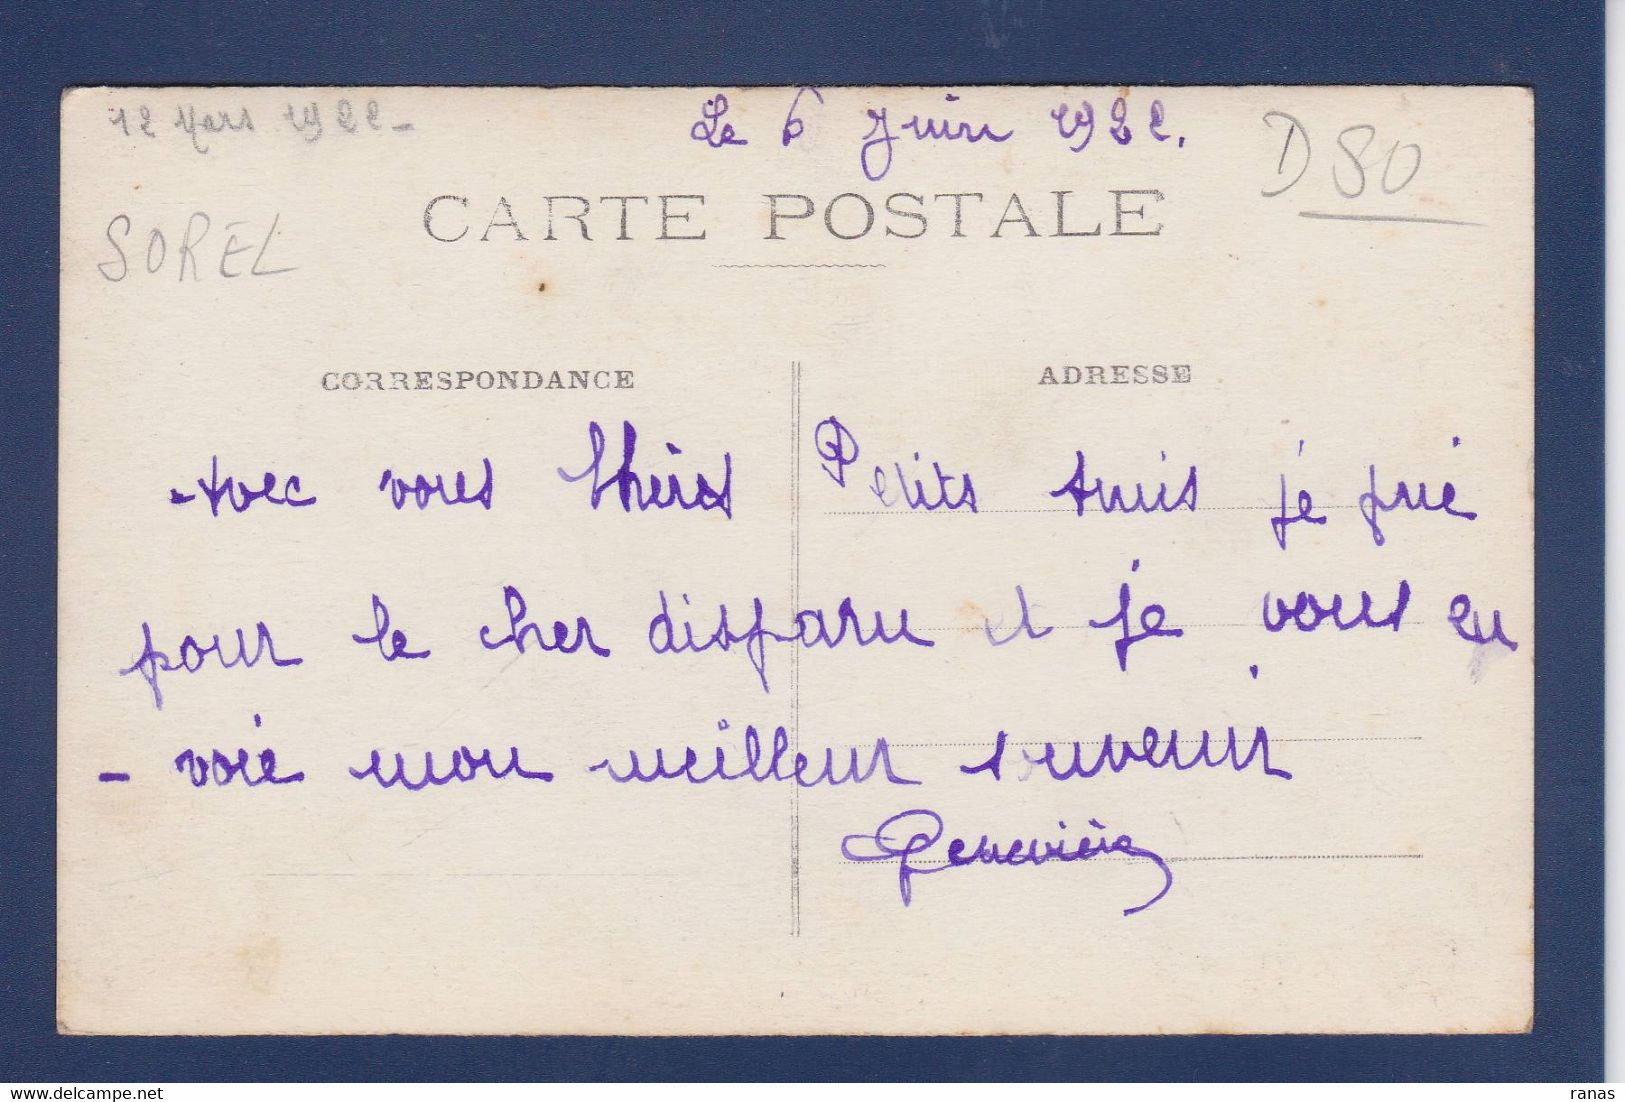 12 Mars 1922 -
Le 6 Juin 1922.
D80
CARTE POSTALE
SOREL
CORRESPONDANCE
ADRESSE
Avec vous Chères Petits Amis je prie
pour le cher disparu et je vous en
- voie mon meilleur souvenir
Geneviève
ranas